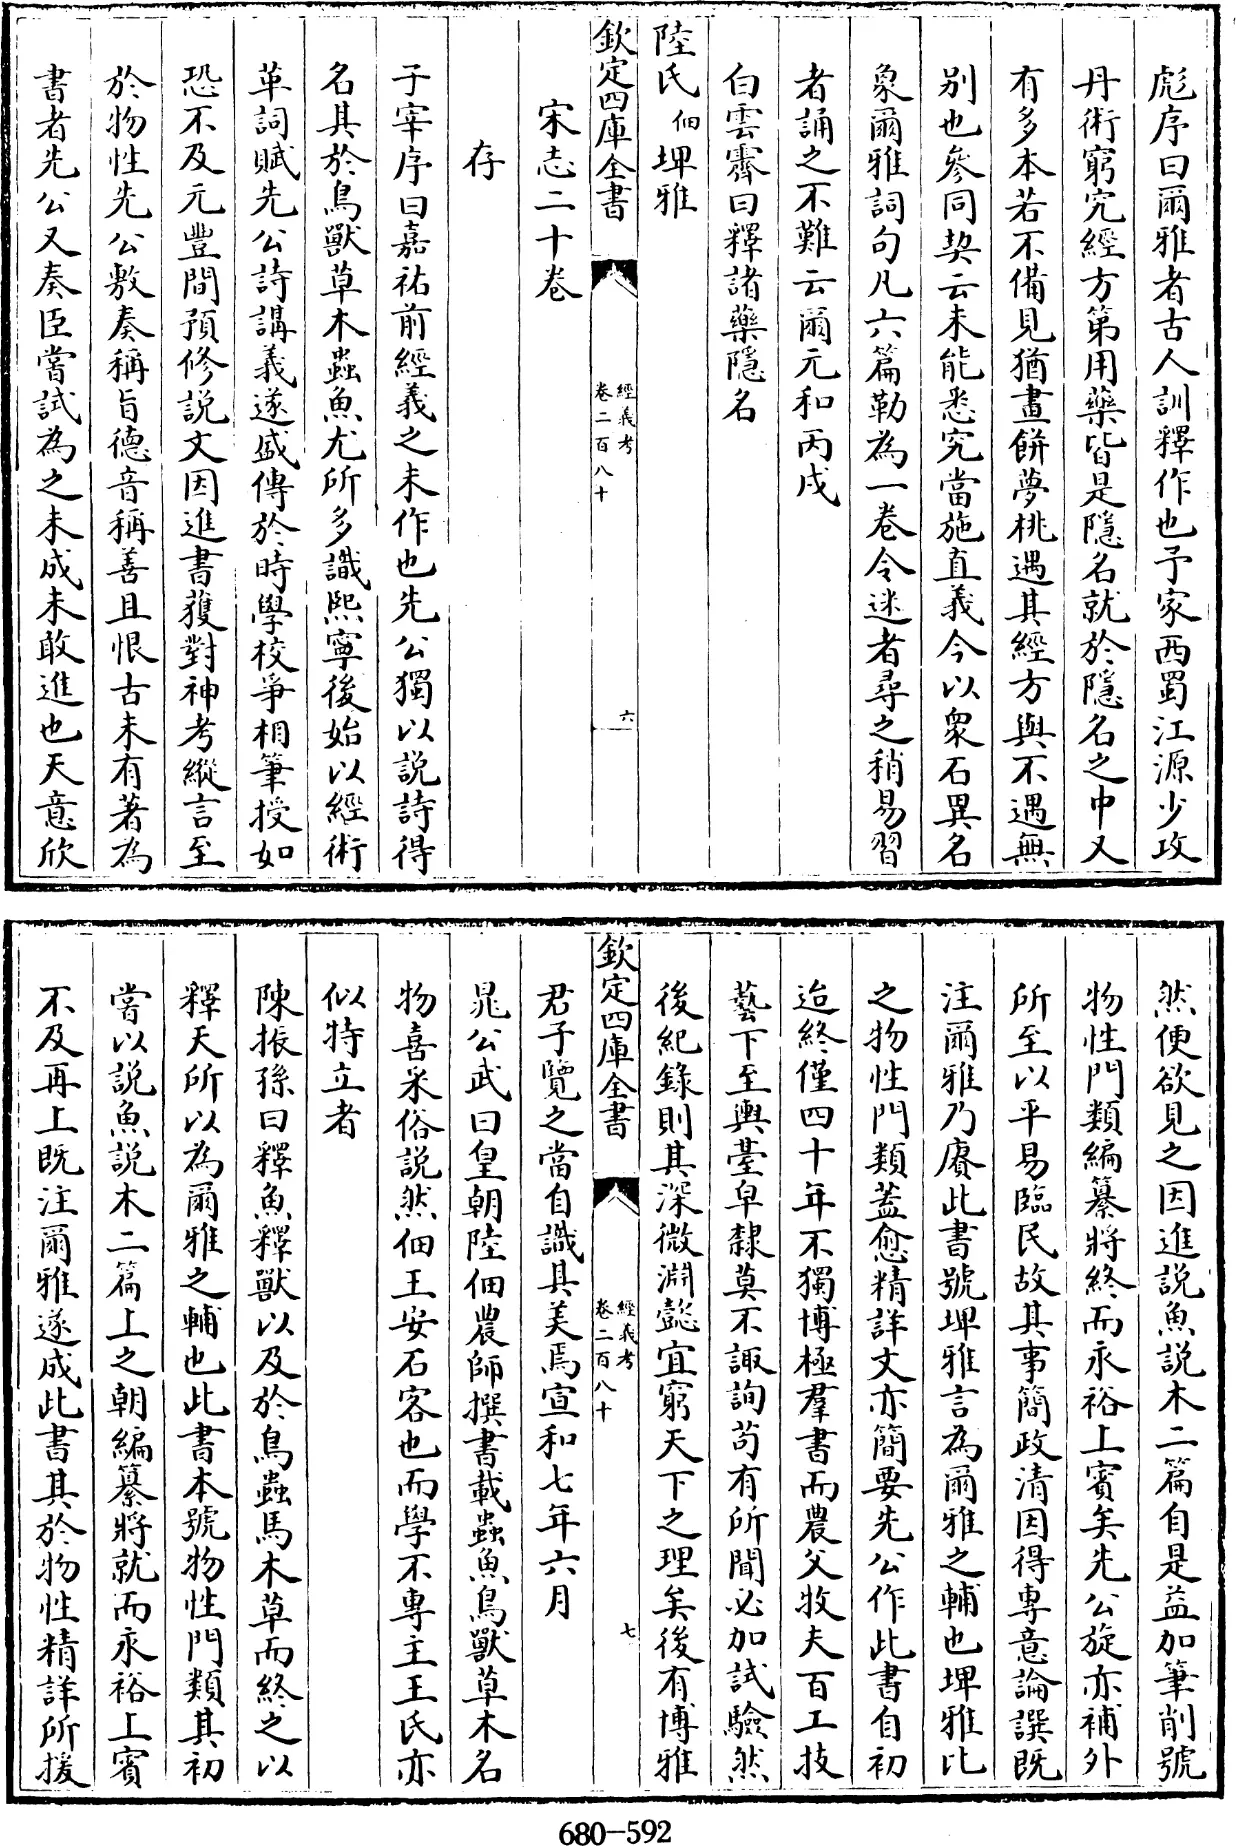 彪序曰爾雅者古人訓釋作也予家西蜀江源少攻
丹術窮究經方第用藥皆是隱名就於隱名之中又
有多本若不備見猶畫餅夢桃遇其經方與不遇無
别也參同契云未能悉究當施直義今以衆石異名
象爾雅詞句凡六篇勒為一卷令迷者尋之稍易習
者誦之不難云爾元和丙戌
白雲霽曰釋諸藥隱名
陸氏佃埤雅
欽定四庫全書
經義考
卷二百八十
六
宋志二十卷
存
子宰序曰嘉祐前經義之未作也先公獨以説詩得
名其於鳥獸草木蟲魚尤所多識熙寧後始以經術
革詞賦先公詩講義遂盛傳於時學校爭相筆授如
恐不及元豐間預修説文因進書獲對神考縱言至
於物性先公敷奏稱旨德音稱善且恨古未有著為
書者先公又奏臣嘗試為之未成未敢進也天意欣
然便欲見之因進説魚説木二篇自是益加筆削號
物性門類編纂將終而永裕上賓矣先公旋亦補外
所至以平易臨民故其事簡政清因得專意論譔既
注爾雅乃賡此書號埤雅言為爾雅之輔也埤雅比
之物性門類蓋愈精詳文亦簡要先公作此書自初
迨終僅四十年不獨博極羣書而農父牧夫百工技
藝下至輿臺皁隸莫不諏詢苟有所聞必加試驗然
後紀錄則其深微淵懿宜窮天下之理矣後有博雅
欽定四庫全書
經義考
卷二百八十
七
君子覽之當自識其美焉宣和七年六月
晁公武曰皇朝陸佃農師撰書載蟲魚鳥獸草木名
物喜采俗説然佃王安石客也而學不専主王氏亦
似特立者
陳振孫曰釋魚釋獸以及於鳥蟲馬木草而終之以
釋天所以為爾雅之輔也此書本號物性門類其初
嘗以説魚説木二篇上之朝編纂將就而永裕上賓
不及再上既注爾雅遂成此書其於物性精詳所援
680-592